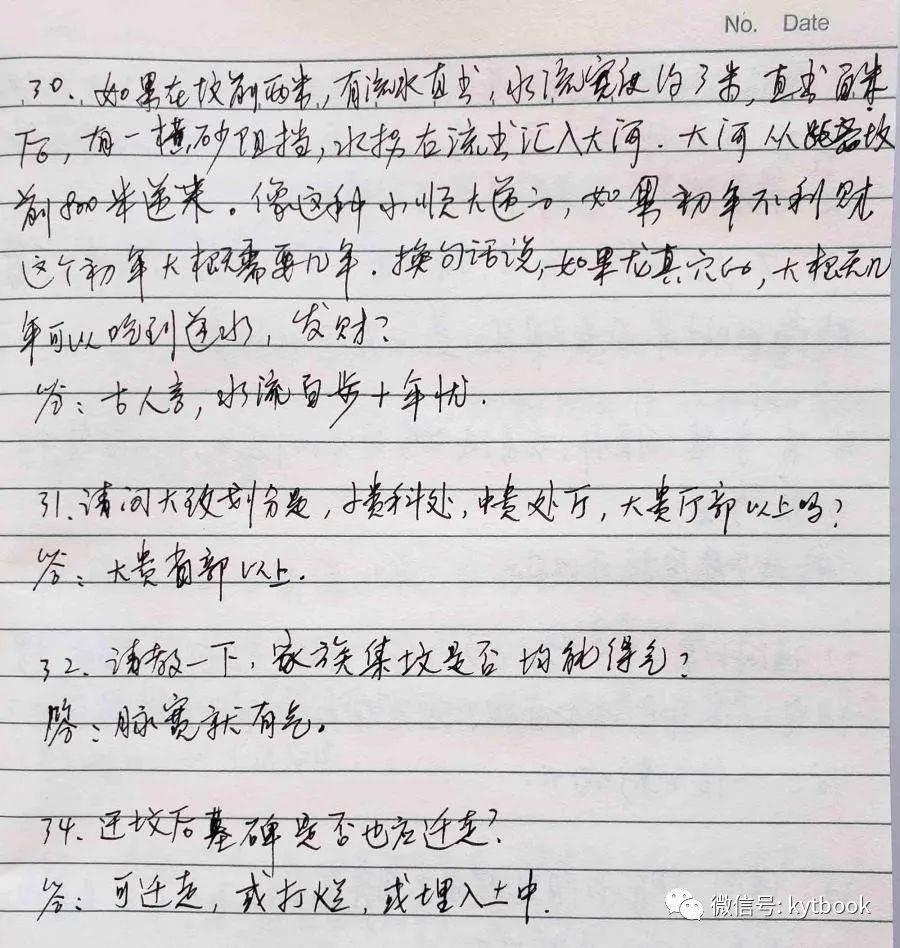 No. Date
30. 如果在坟前两米,有流水直出,水流宽度约3米,直出百米
后,有一横砂阻挡,水拐右流出汇入大河.大河从距离坟
前800米逆来。像这种小顺大逆之,如果初年不利财
这个初年大概需要几年.换句话说,如果龙真穴的,大概几
年可以吃到逆水,发财?
答:古人言,水流百步十年忧.
31.请问大致划分是,小贵科处,中贵处厅,大贵厅部以上吗?
答:大贵省部以上.
32.请教一下,家族集坟是否均能得气?
答:脉宽就有气。
34.迁坟后墓碑是否也应迁走?
答:可迁走,或打烂,或埋入土中.
微信号: kytbook